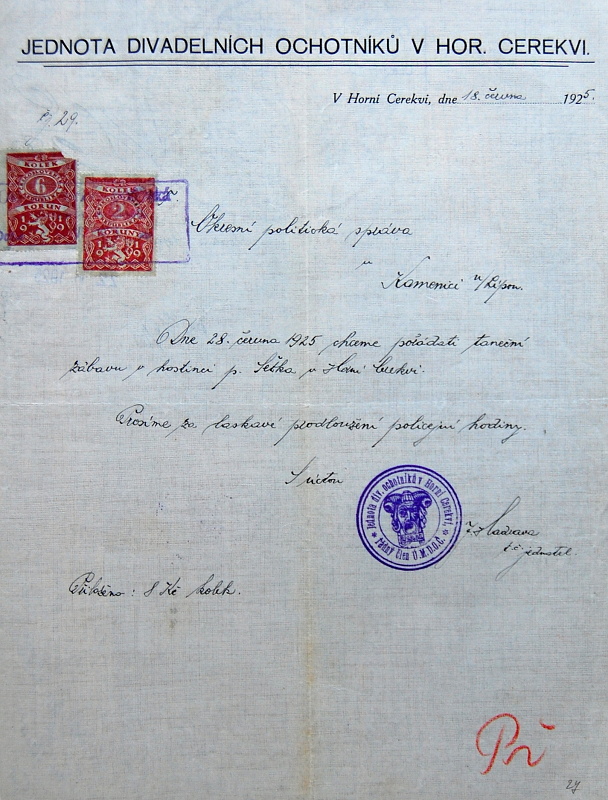 JEDNOTA DIVADELNÍCH OCHOTNÍKŮ V HOR. CEREKVI.
V Horní Cerekvi, dne 18. června 1925.
29.
KOLEK
6
KORUN
KOLEK
2
KORUNY
Okresní politická správa
v
Kamenici n/Lipou.
Dne 28. června 1925 chceme pořádati taneční
zábavu v hostinci p. v Horní Cerekvi.
Prosíme za laskavé prodloužení policejní hodiny.
S úctou
Jednota div. ochotníků v Horní Cerekvi,
řádný člen Ú.M.D.O.Č.
t. č. jednatel.
Přiloženo: 8 Kč kolek.